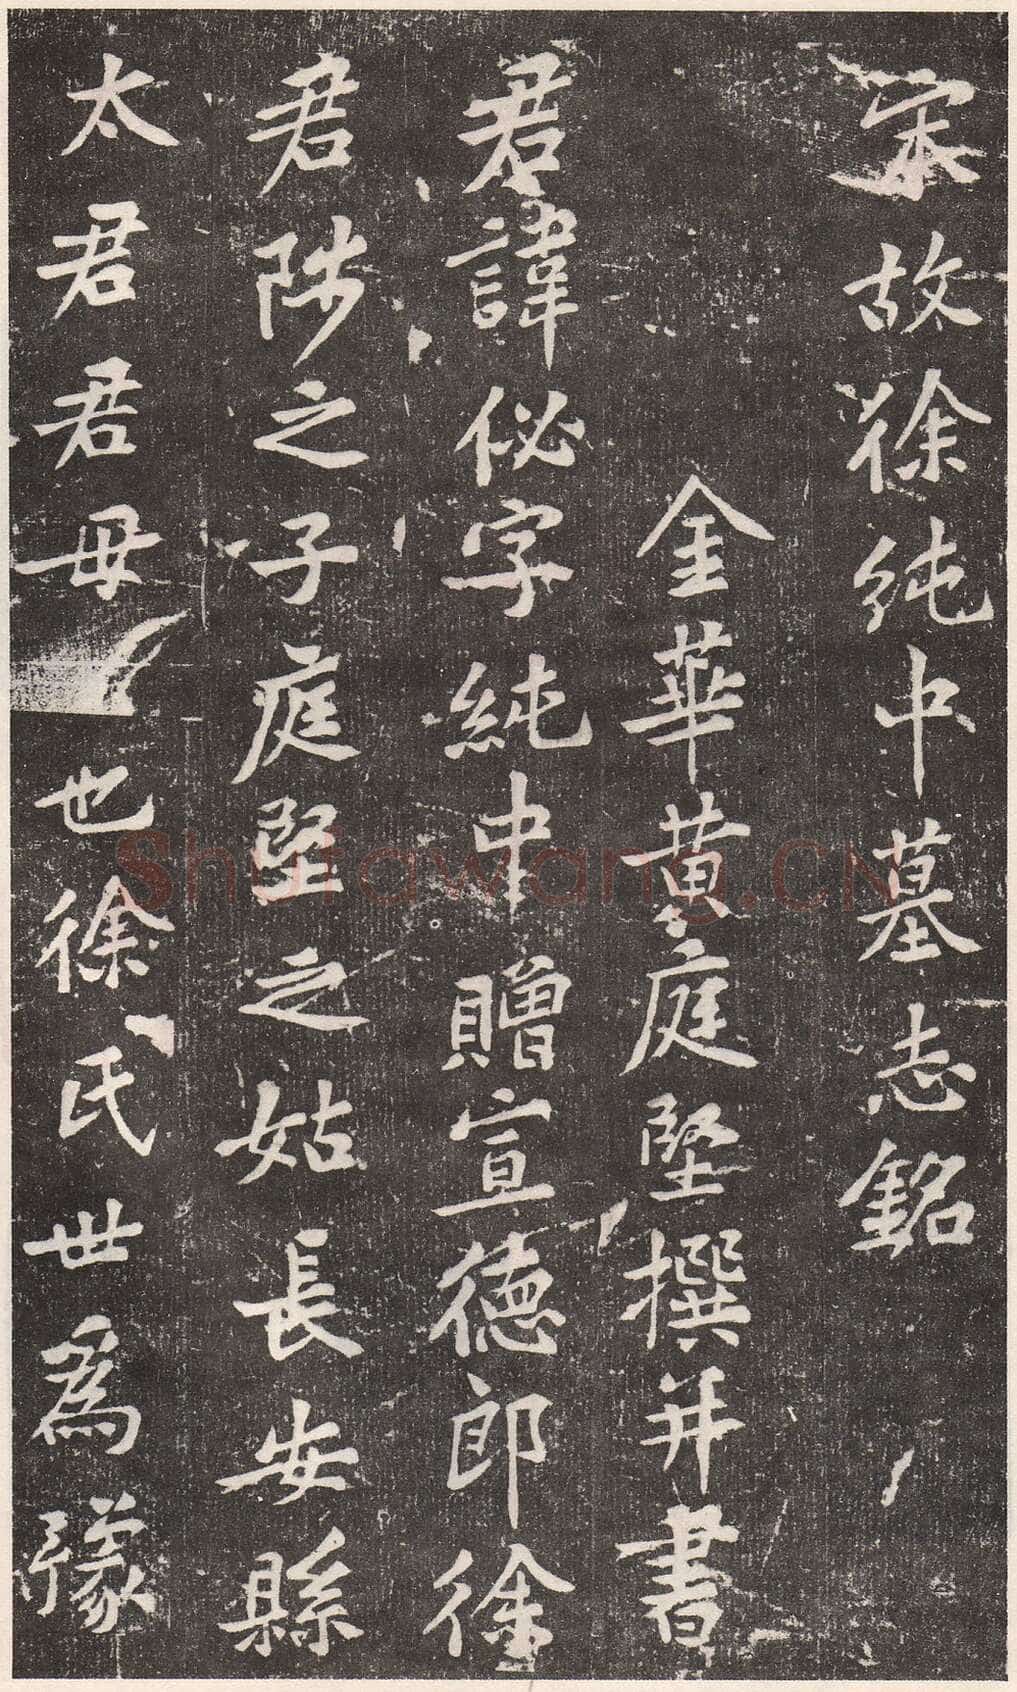 宋故徐純中墓志銘
金華黃庭堅撰并書
君諱佖字純中贈宣德郎徐
君陟之子庭堅之姑長安縣
太君君母也徐氏世為豫
Shufawang.CN